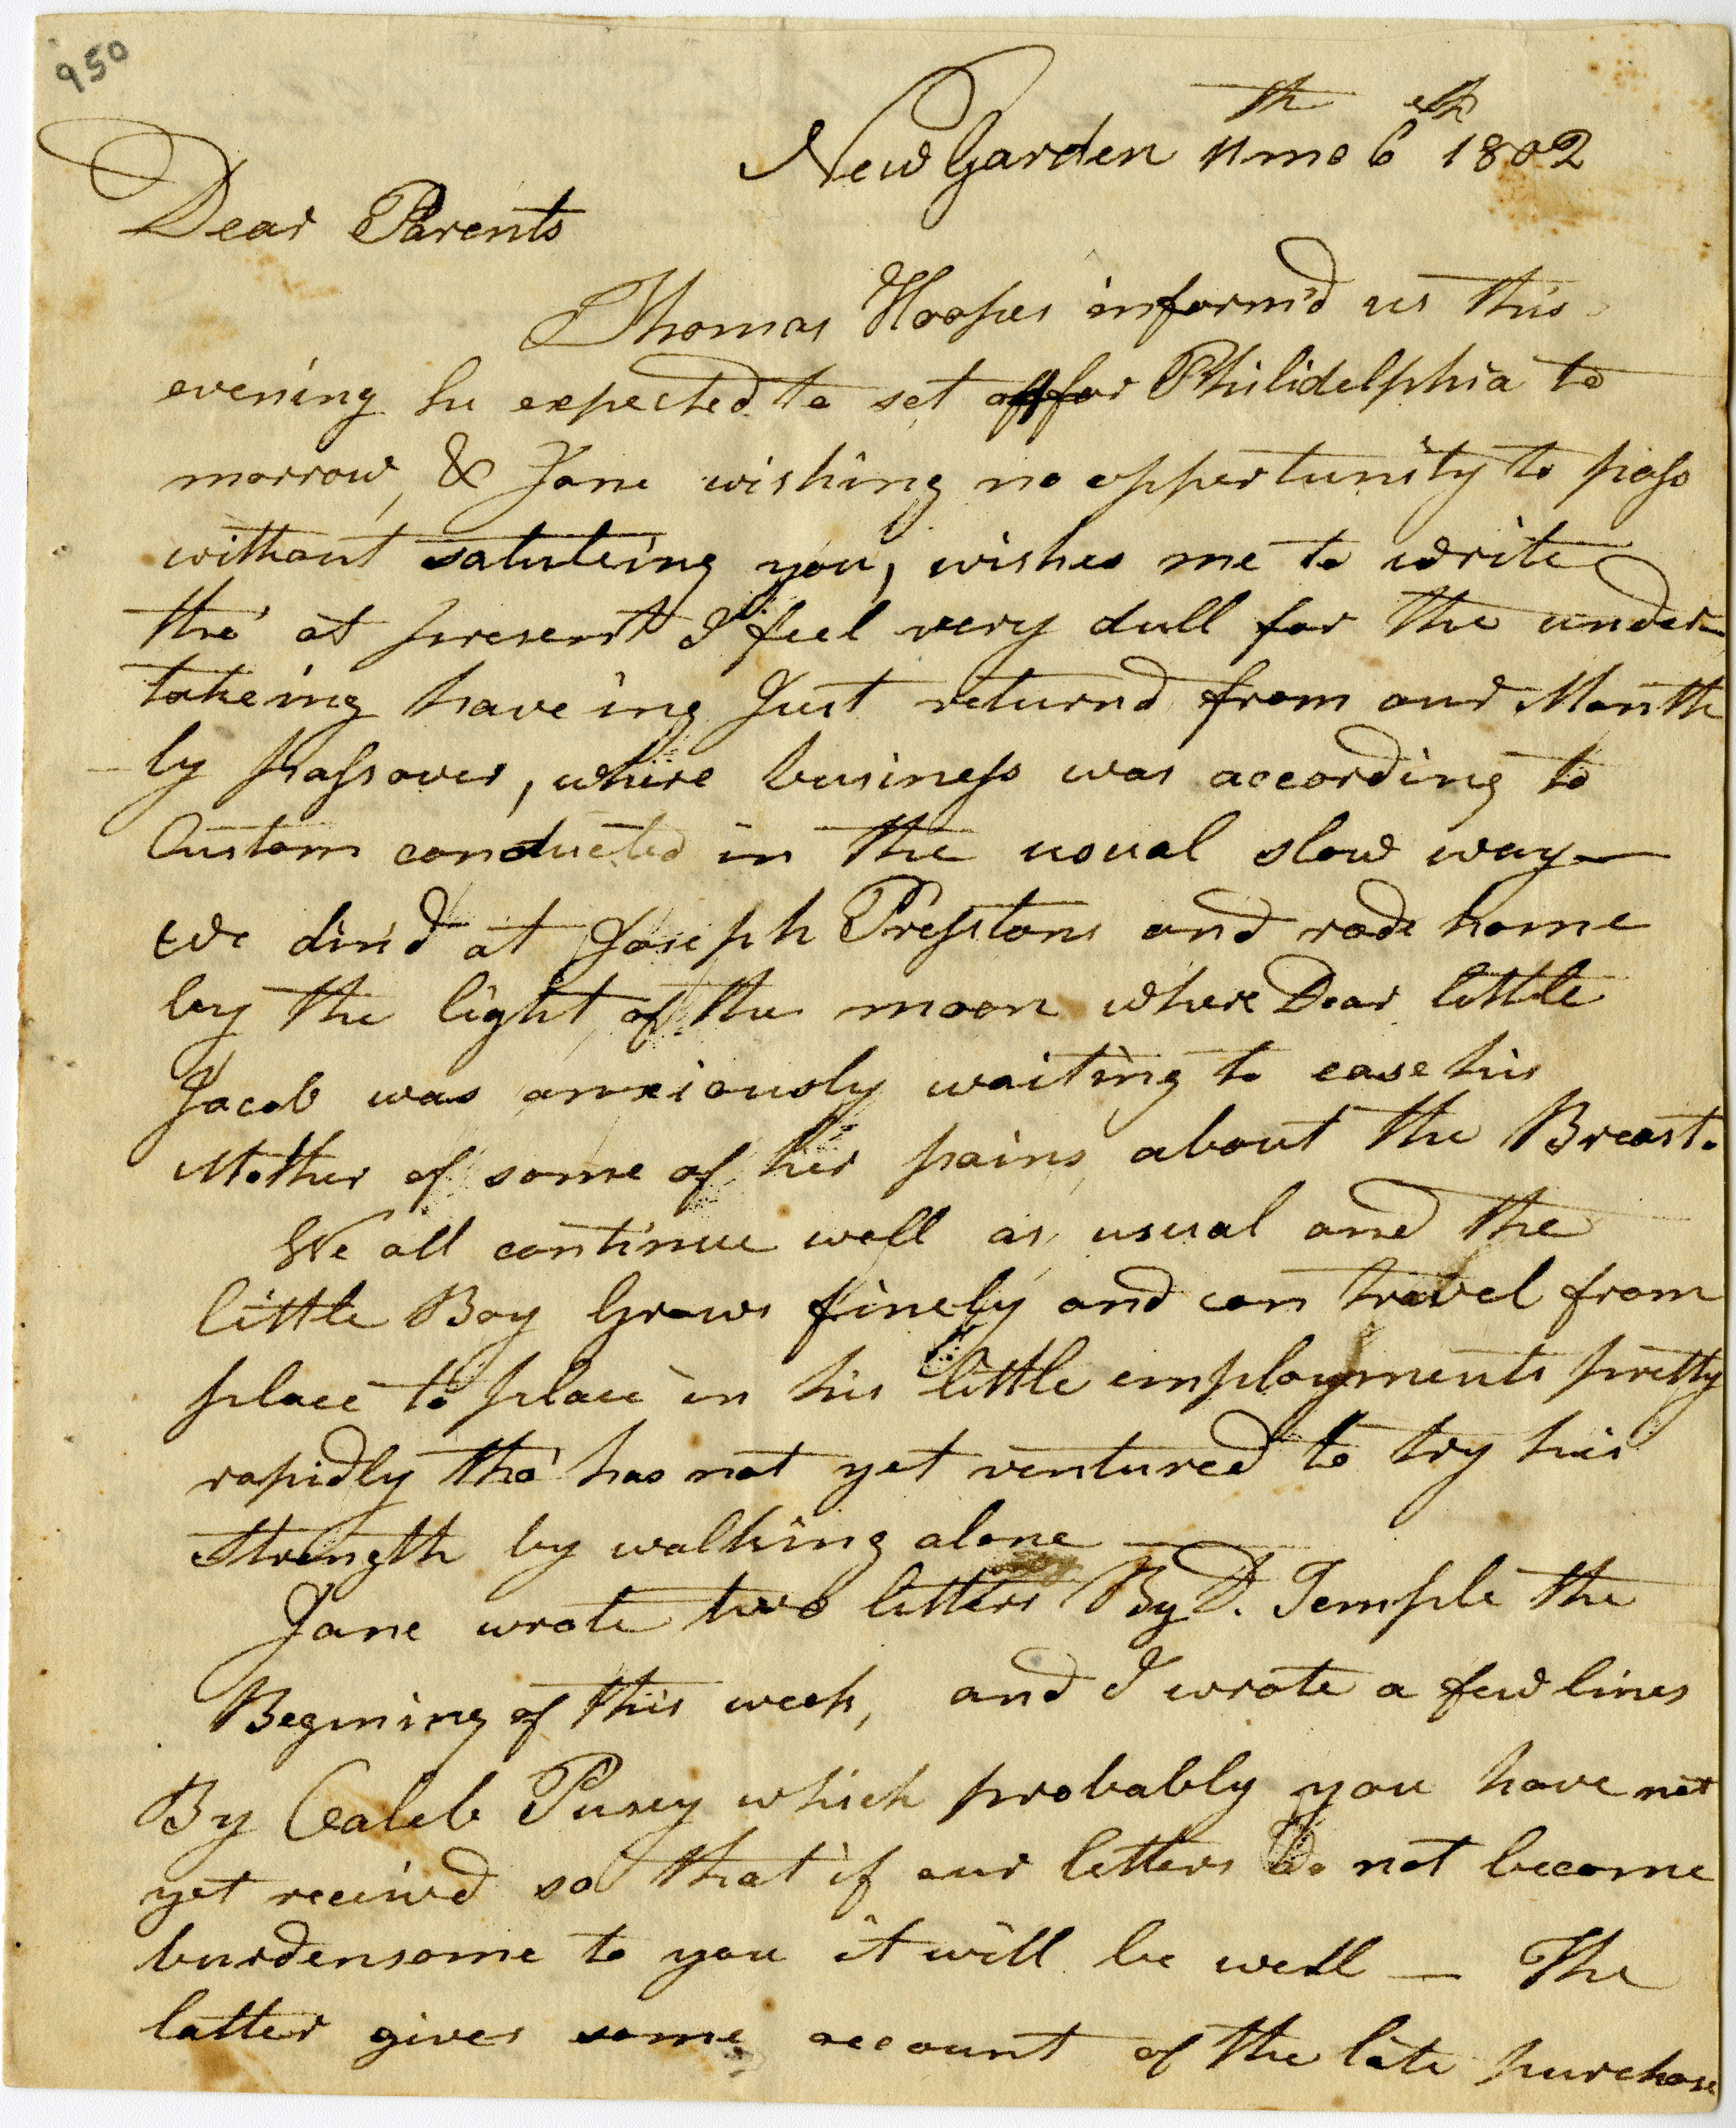 950
New Garden 11th mo 6th 1802
Dear Parents
Thomas Hoopes inform'd us this
evening he expected to set off for Philidelphia to
morrow, & Jane wishing no opportunity to pass
without saluteing you, wishes me to write
tho' at present I feel very dull for the under
takeing haveing Just returnd from our Month
ly passover, where business was according to
Custom conducted in the usual slow way —
We din'd at Joseph Presstons and rode home
by the light of the moon where Dear little
Jacob was anxiously waiting to ease his
Mother of some of her pains, about the Breast.
We all continue well as usual and the
little Boy Grows finely and can travel from
place to place in his little employments pretty
rapidly tho' has not yet ventured to try his
strength by walking alone —
Jane wrote two letters By D. Temple the
Begining of this week, and I wrote a few lines
By Caleb Pusey which probably you have not
yet receivd so that if our letters do not become
burdensome to you it will be well — The
latter gives some account of the late purchase